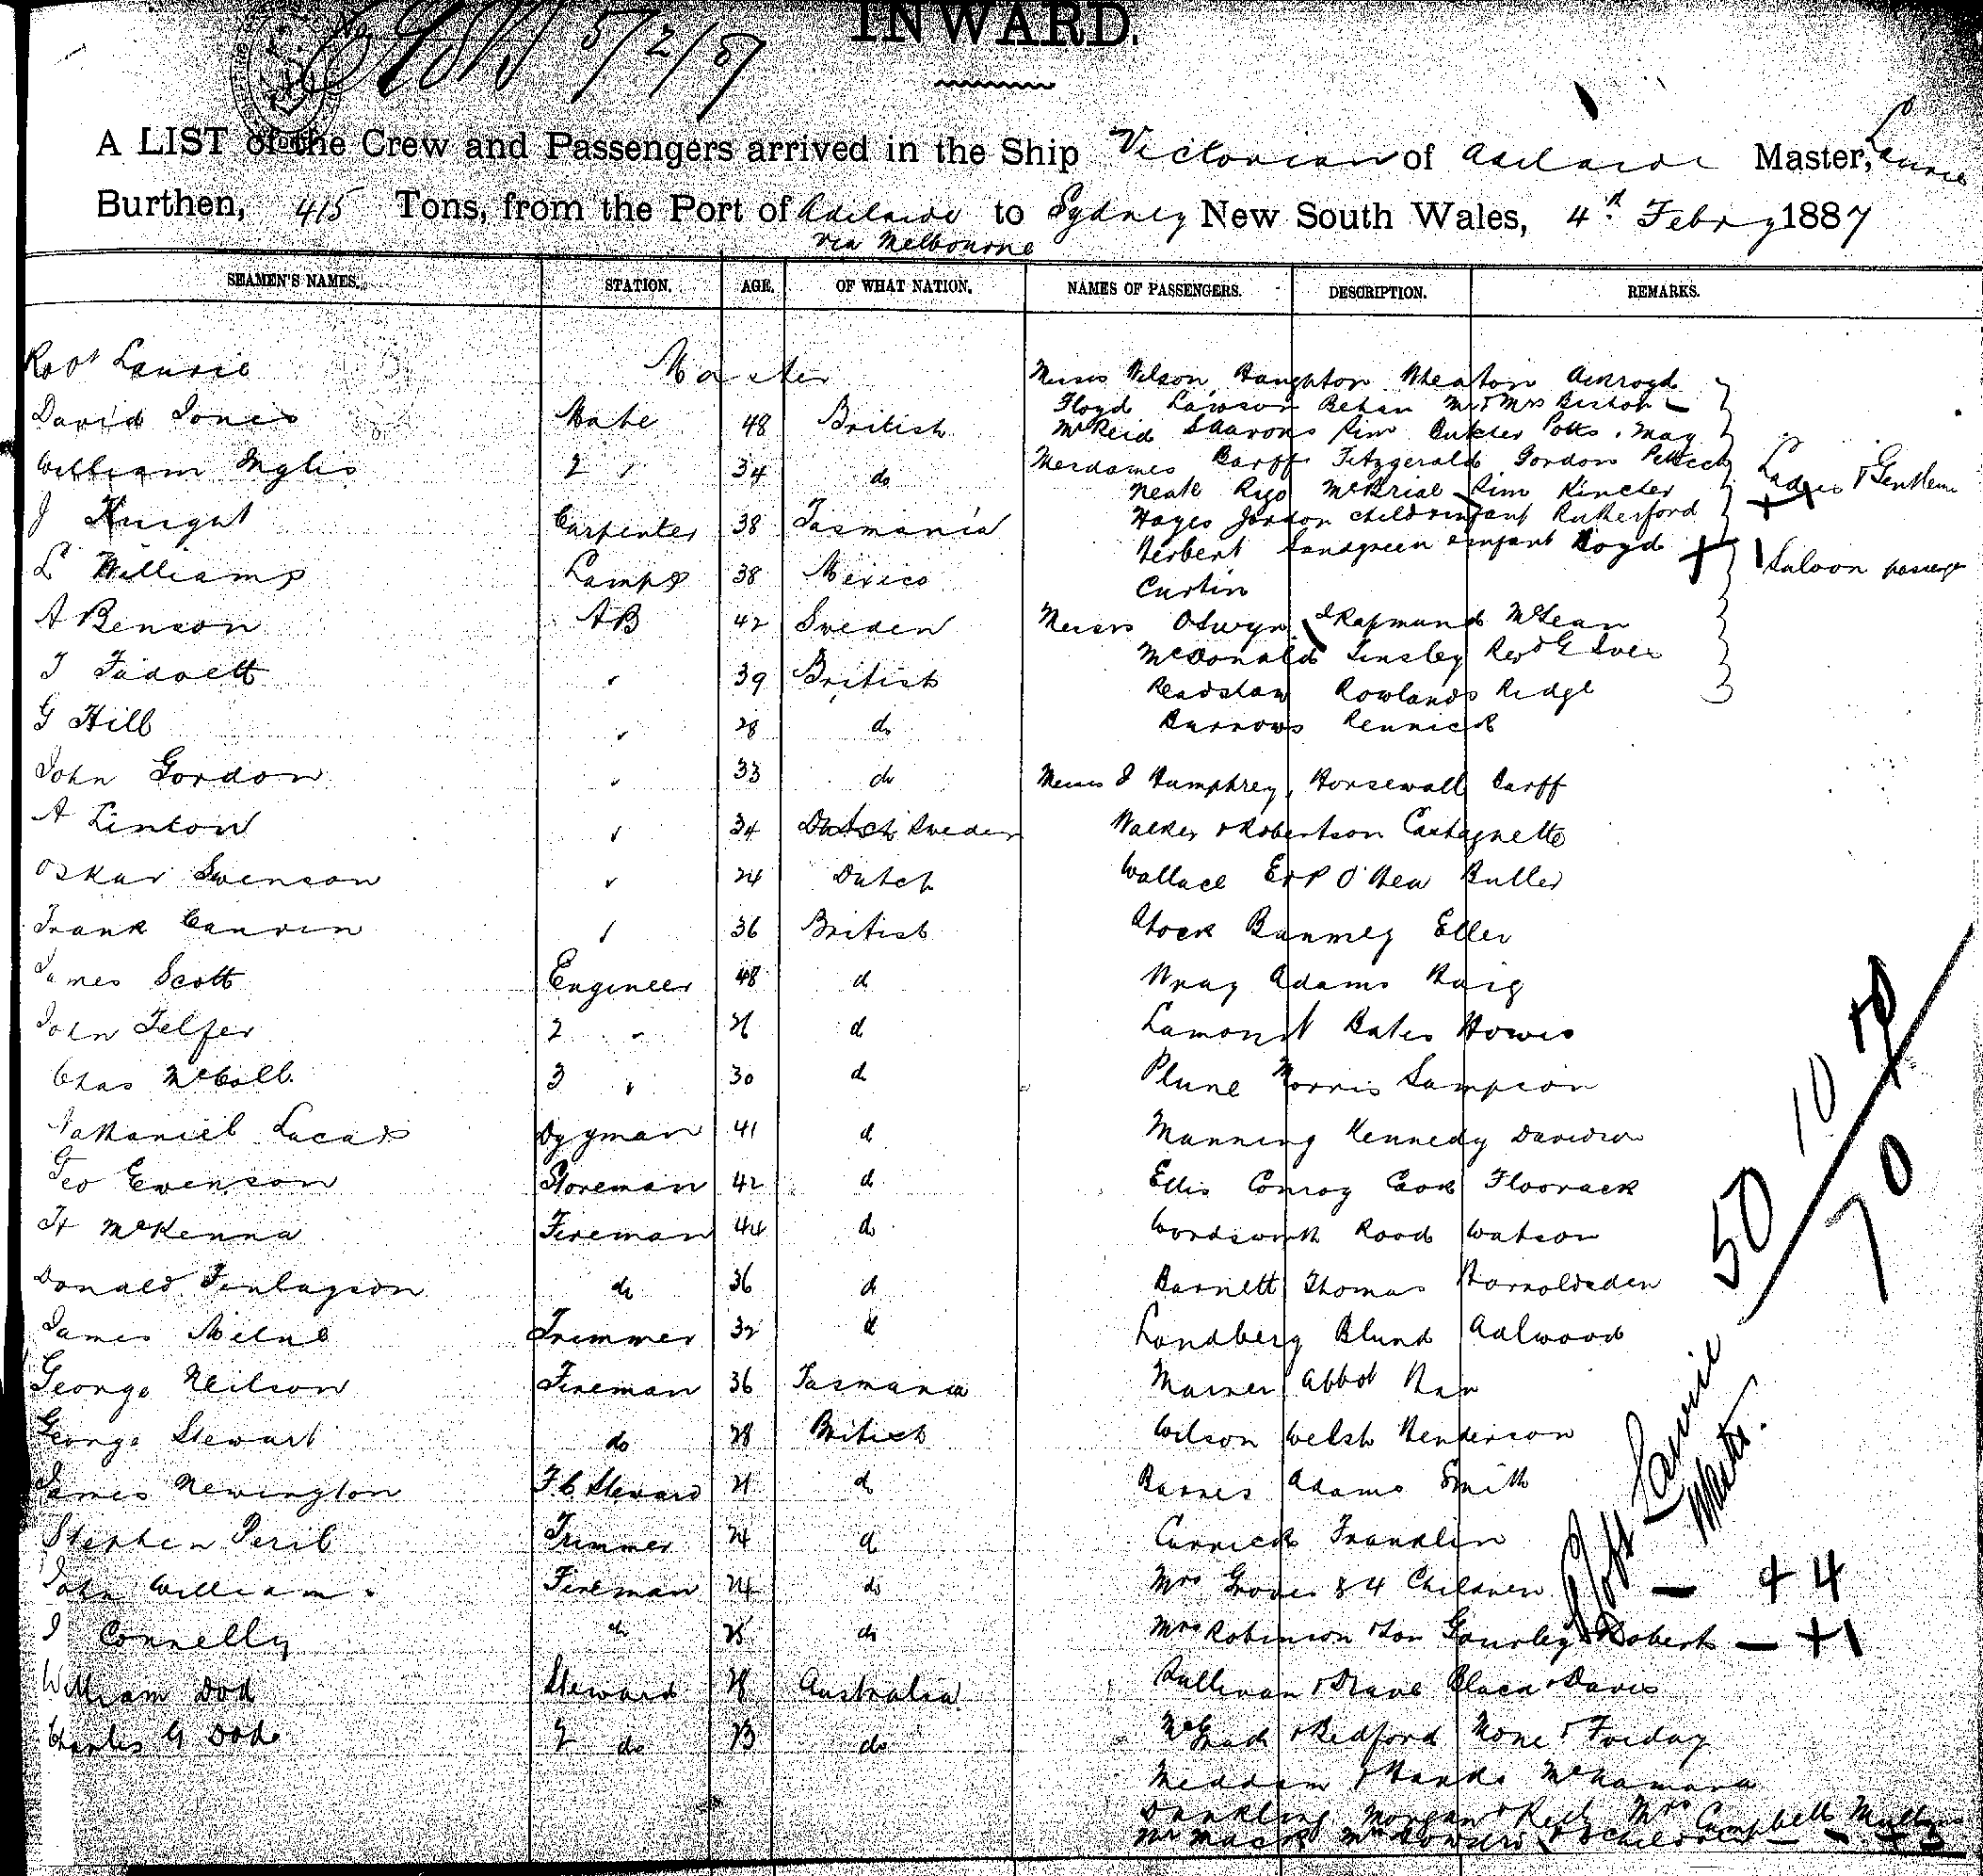 5/2/87
INWARD.
A LIST of the Crew and Passengers arrived in the Ship Victorian of Adelaide Master, Laurie
Burthen, 415 Tons, from the Port of Adelaide to Sydney New South Wales, 4th Febry 1887
via Melbourne
SEAMEN'S NAMES. STATION. AGE. OF WHAT NATION. NAMES OF PASSENGERS. DESCRIPTION. REMARKS.
Robt Laurie Master
David Jones Mate 48 British
William Mylis 2 " 34 do
J Knight Carpenter 38 Tasmania
L Williams Lamps 38 Mexico
A Benson AB 42 Sweden
T Tidvett " 39 British
G Hill " 28 do
John Gordon " 33 do
A Linton " 34 Dutch Sweden
Oskar Swenson " 24 Dutch
Frank Canvin " 36 British
James Scott Engineer 48 d
John Telfer 2 " d
Chas McColl 3 " 30 d
Nathaniel Lucas 41 d
Geo Evenson Storeman 42 d
H McKenna Fireman 44 do
Donald Finlayson do 36 d
James Milne Trimmer 32 d
George Neilson Fireman 36 Tasmania
George Stewart do 28 British
James Newington F C Steward 21 d
Stephen Trimmer 24 d
John Williams Fireman 24 do
J Connelly do 25 do
William Dod Steward Australia
Charles G Dod 2 do 23 do
Messrs Wilson Haughton Wheaton Ackroyd
Floyd Lawson Behan Mr & Mrs Bishop
McReid Saarons Rim Potts May
Mesdames Barff Fitzgerald Gordon
Neale McBrial Rim Kincher
Hayes Jordon child infant Rutherford
Herbert Sandgreen infant Boyd
Curtin
Ladies & Gentlemen
Saloon passengers
Messrs Olwyn & Rapmund McLean
McDonald Tinsley Revd G
Readshaw Rowlands Ridge
Burrows Rennick
Messrs J Humphrey, Horsewall Barff
Walker & Robertson Castagnette
Wallace E & P O'Hea Butler
Stock Banmey Eller
Wray Adams Haig
Lamont Bates Howes
Plune Morris Sampson
Manning Kennedy Davidson
Ellis Conroy Cook Floorack
Wordsworth Rood Watson
Barnett Thomas
Lundberg Blund Aalwood
Abbot
Wilson Welsh Henderson
Barnes Adams Smith
Carrick Franklin
Mrs Groves & 4 Children — + 4
Mrs Robinson & Son Gourley & Robert — + 1
Sullivan & Drane Black & Davis
& Bedford & Friday
McNamara
Morgan & Mrs Campbell
Mr Mack
50 10 10
70
Robt Laurie
Master.